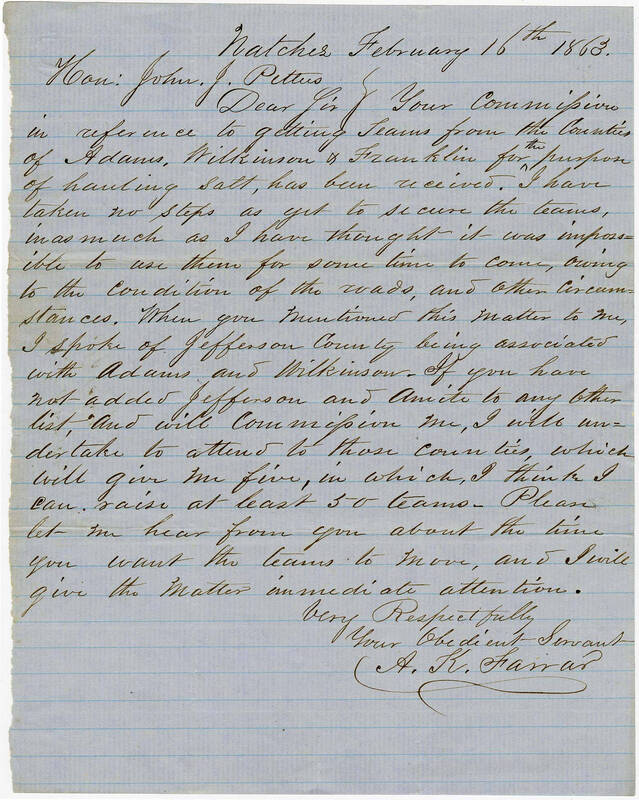 Natchez February 16th 1863.
Hon: John. J. Pettus
Dear Sir } Your Commission
in reference to getting teams from the Counties
of Adams, Wilkinson & Franklin for the purpose
of hauling salt, has been received. I have
taken no steps as yet to secure the teams,
inasmuch as I have thought it was imposs=
ible to use them for some time to come, owing
to the condition of the roads, and other circum-
stances. When you mentioned this matter to me,
I spoke of Jefferson County being associated
with Adams and Wilkinson. If you have
not added Jefferson and Amite to any other
list, and will Commission me, I will un-
dertake to attend to those counties, which
will give me five, in which, I think I
can raise at least 50 teams. Please
let me hear from you about the time
you want the teams to move, and I will
give the matter immediate attention.
Very Respectfully
Your Obedient Servant
A. K. Farrar